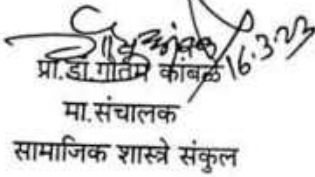 16.3.23
प्रा.डॉ.गौतम कांबळे
मा.संचालक
सामाजिक शास्त्रे संकुल